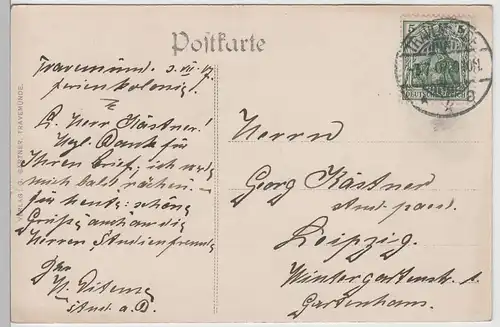 Postkarte
Travemünde 3. VII. 07.
Ferienkolonie!
L. Herr Kästner!
Vgl. Dank für
Ihren Brief, ich werde
mich bald rächen.
Für heute: schöne
Grüße auch an die
Herren Studienfreunde
Ihr
stud. a. D.
Herrn
Georg Kästner
stud. paed.
Leipzig.
Wintergartenstr.
Gartenhaus.
VERLAG: G. GÄRTNER, TRAVEMÜNDE.
5
DEUTSCHES REICH
TRAVEMÜNDE